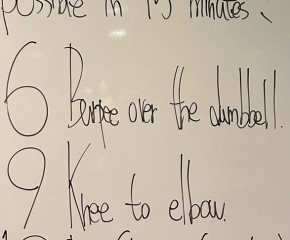 possible in 15 minutes
6 Burpee over the dumbbell.
9 Knee to elbow.